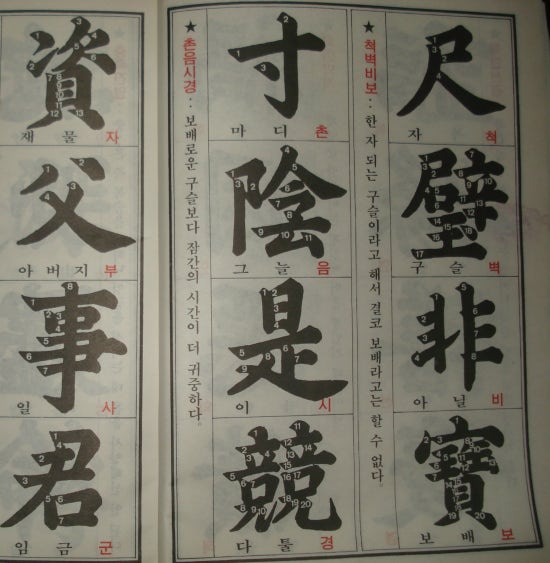 尺
자 척
璧
구슬 벽
非
아닐 비
寶
보배 보
★ 척벽비보 : 한 자 되는 구슬이라고 해서 결코 보배라고는 할 수 없다.
寸
마디 촌
陰
그늘 음
是
이 시
競
다툴 경
★ 촌음시경 : 보배로운 구슬보다 잠간의 시간이 더 귀중하다.
資
재물 자
父
아버지 부
事
일 사
君
임금 군